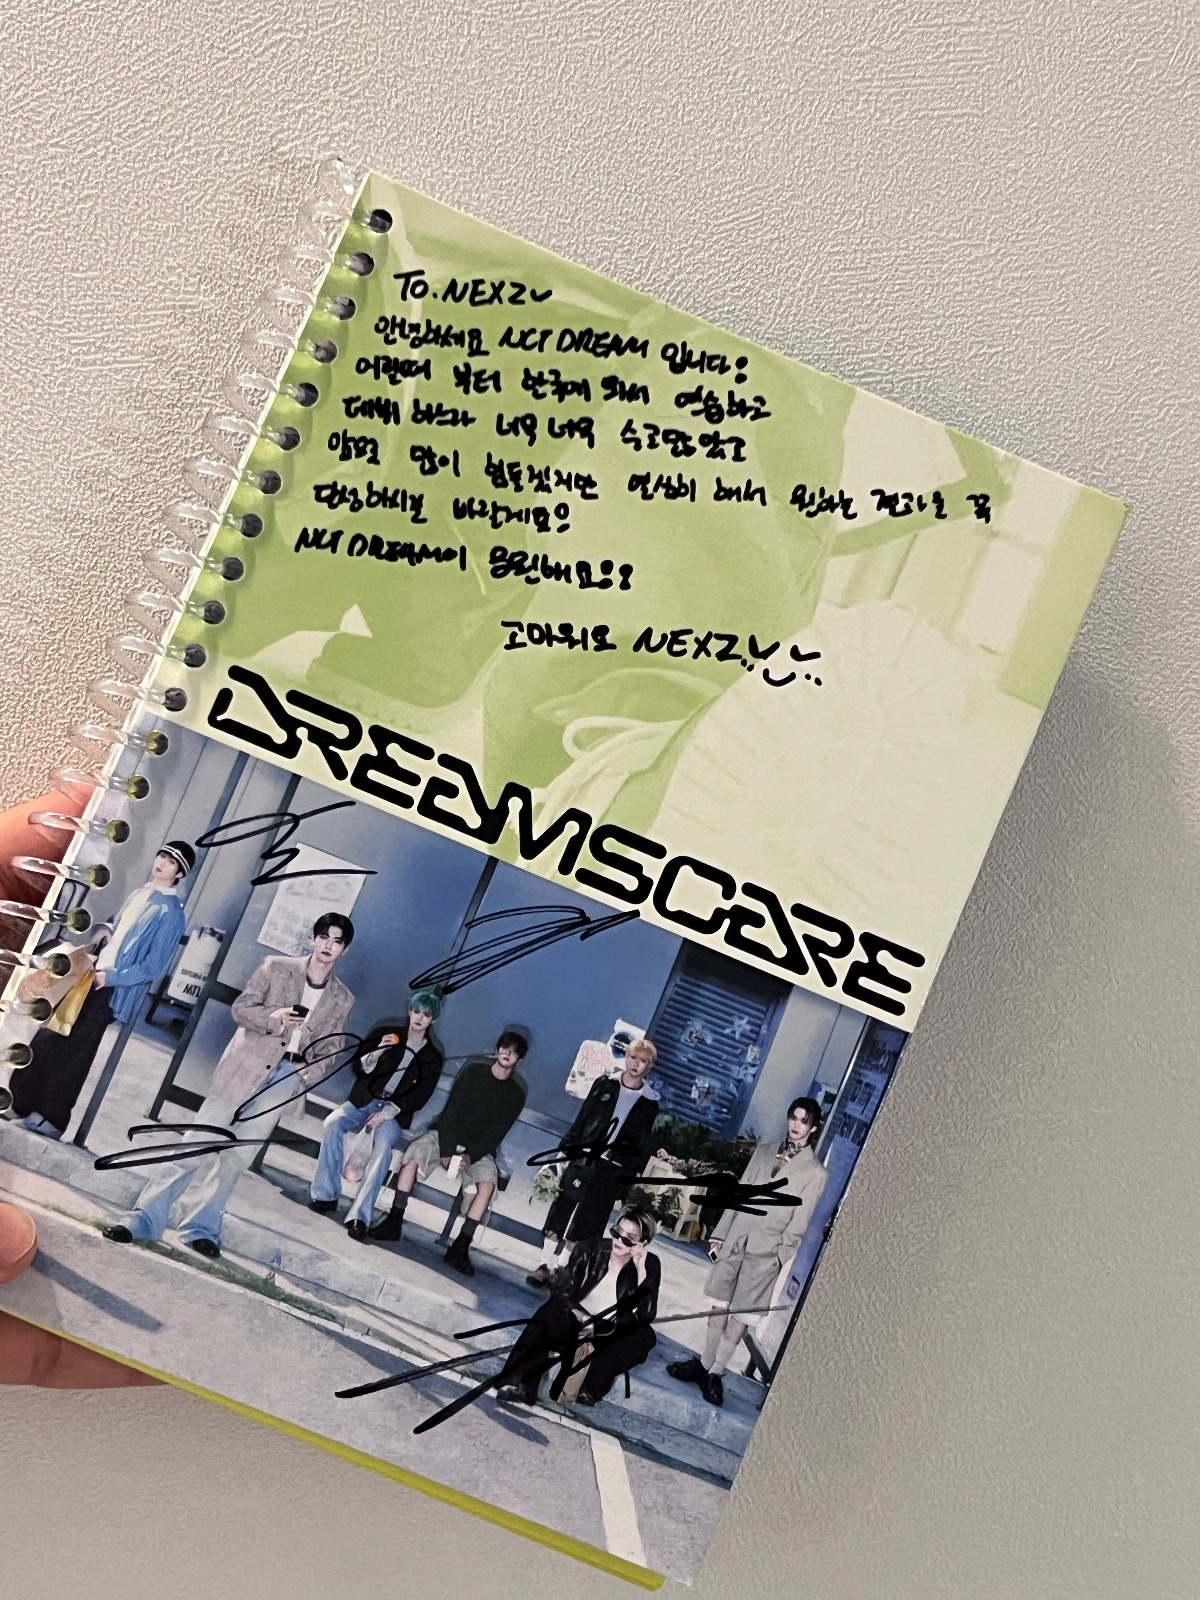 To. NEXZ
안녕하세요 NCT DREAM 입니다!
어릴때 부터 한국에 와서 연습하고
데뷔 하느라 너무너무 수고많았고
앞으로 많이 힘들겠지만 열심히 해서 원하는 결과를 꼭
달성하시길 바랄게요!
NCT DREAM이 응원해요!!
고마워요 NEXZ
DREAMSCAPE